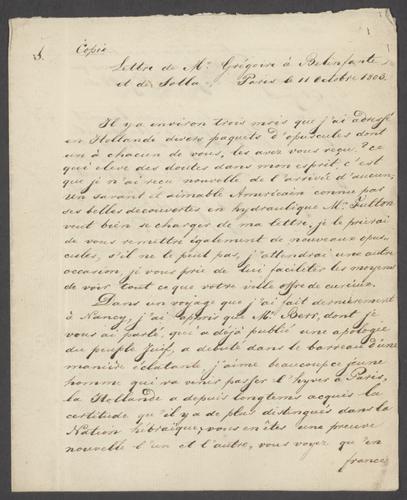 8.
Copie
Lettre de Mr. Grégoire à Belinfante
et de Solla. Paris le 11 Octobre 1803.
Il y a environ trois mois que j'ai adressé
en Hollande divers paquets d'opuscules dont
un à chacun de vous, les avez vous reçu? ce
qui eleve des doutes dans mon esprit c'est
que je n'ai reçu nouvelle de l'arrivée d'aucun;
un savant et aimable Américain connu par
ses belles decouvertes en hydraulique Mr. Fulton
veut bien se charger de ma lettre, je le prierai
de vous remettre également de nouveaux opus-
cules, s'il ne le peut pas, j'attendrai une autre
occasion, je vous prie de lui faciliter les moyens
de voir tout ce que votre ville offre de curieux.
Dans un voyage que j'ai fait dernièrement
à Nancy, j'ai appris que Mr. Berr, dont je
vous ai parlé, qui a déjà publié une apologie
du peuple Juif, a debuté dans le barreau d'une
manière éclatante j'aime beaucoup ce jeune
homme qui va venir passer l'hyver à Paris,
la Hollande a depuis longtems acquis la
certitude qu'il y a de plus distingués dans la
Nation hébraïque, vous en êtes une preuve
nouvelle l'un et l'autre, vous voyez qu'en
france